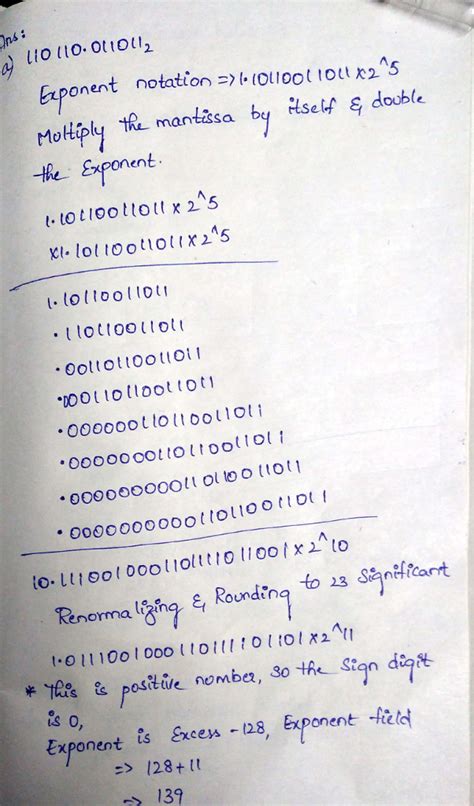 Ans:
a) 110110.011011₂
Exponent notation => 1.10110011011 x 2^5
Moltiply the mantissa by itself & double
the Exponent.
1.10110011011 x 2^5
x1.10110011011 x 2^5
1.10110011011
.110110011011
.00110110011011
.000110110011011
.000000110110011011
.0000000110110011011
.0000000001101100 11011
.0000000000110110011011
10.1110010001101111011001 x 2^10
Renormalizing & Rounding to 23 significant
1.0111001000110111101101 x 2^11
* This is positive number, so the sign digit
is 0,
Exponent is Excess -128, Exponent field
=> 128+11
=> 139